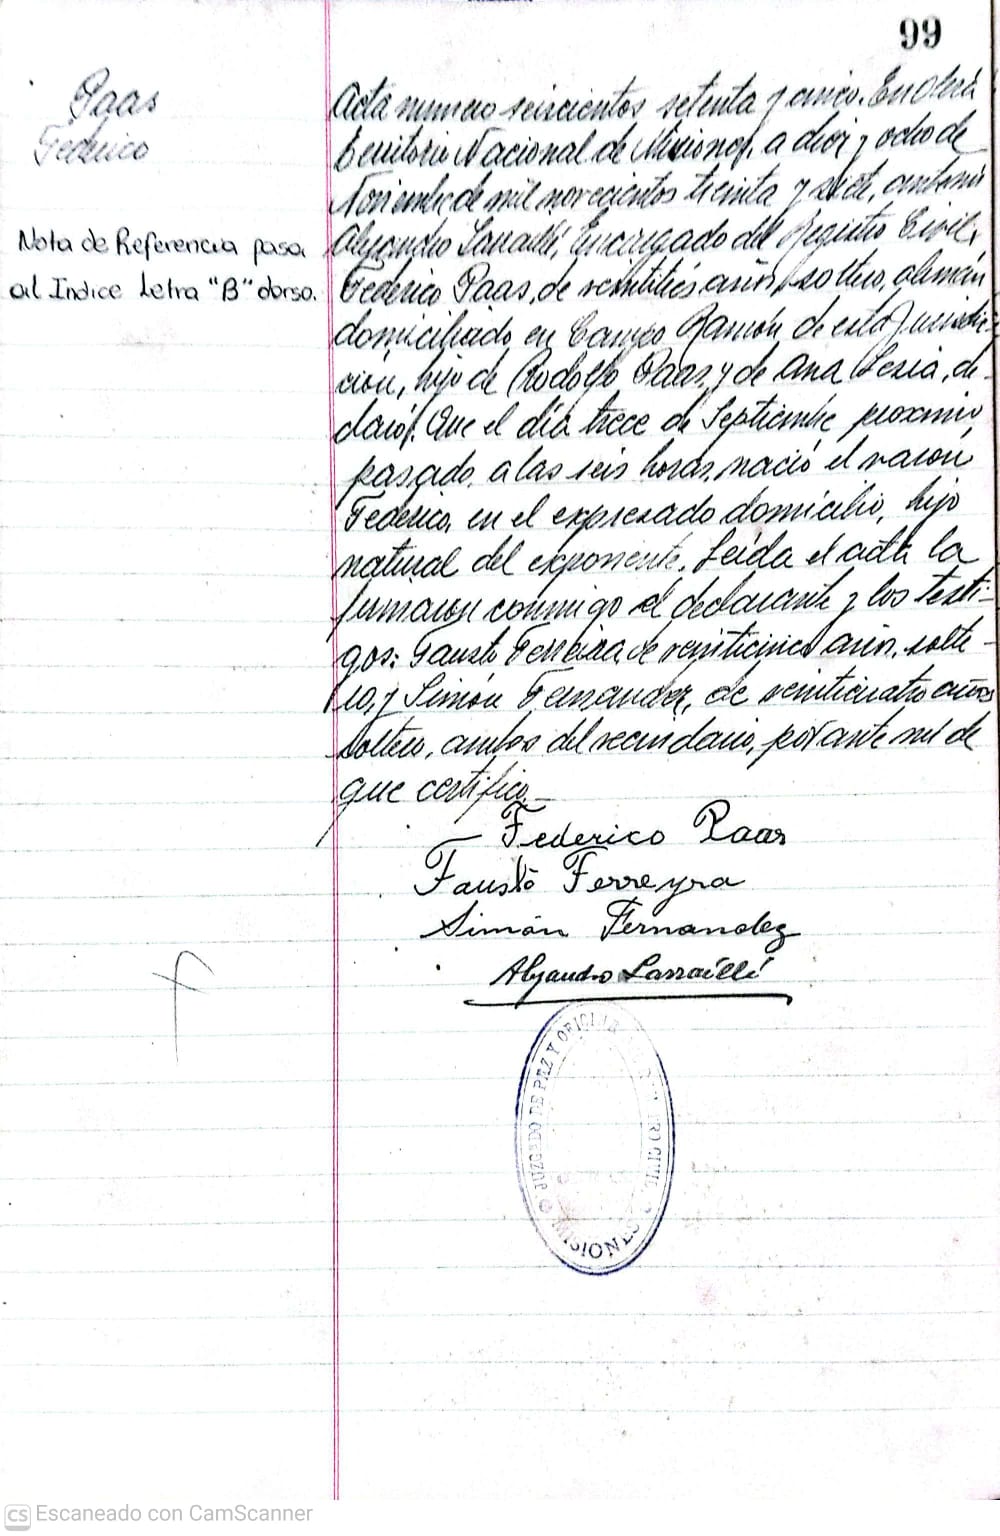 99
Paas
Federico
Nota de Referencia pasa
al Indice Letra "B" dorso.
Acta número seiscientos setenta y cinco. En Oberá
Territorio Nacional de Misiones, a diez y ocho de
Noviembre de mil novecientos treinta y siete, ante mi
Alejandro Larraillé, Encargado del Registro Civil,
Federico Paas, de veintitrés años, soltero, alemán
domiciliado en Campo Ramón de esta Jurisdic-
ción, hijo de Rodolfo Paas, y de Ana, de-
claró: Que el día trece de Septiembre próximo
pasado, a las seis horas, nació el varón
Federico, en el expresado domicilio, hijo
natural del exponente. Leída el acta la
firmaron conmigo el declarante y los testi-
gos: Fausto Ferreira de veinticinco años, solte-
ro, y Simón Fernandez, de veinticuatro años
soltero, ambos del vecindario, por ante mi de
que certifico.
Federico Paas
Fausto Ferreyra
Simón Fernandez
Alejandro Larraillé
JUZGADO DE PAZ Y OFICINA CIVIL
MISIONES
CS Escaneado con CamScanner